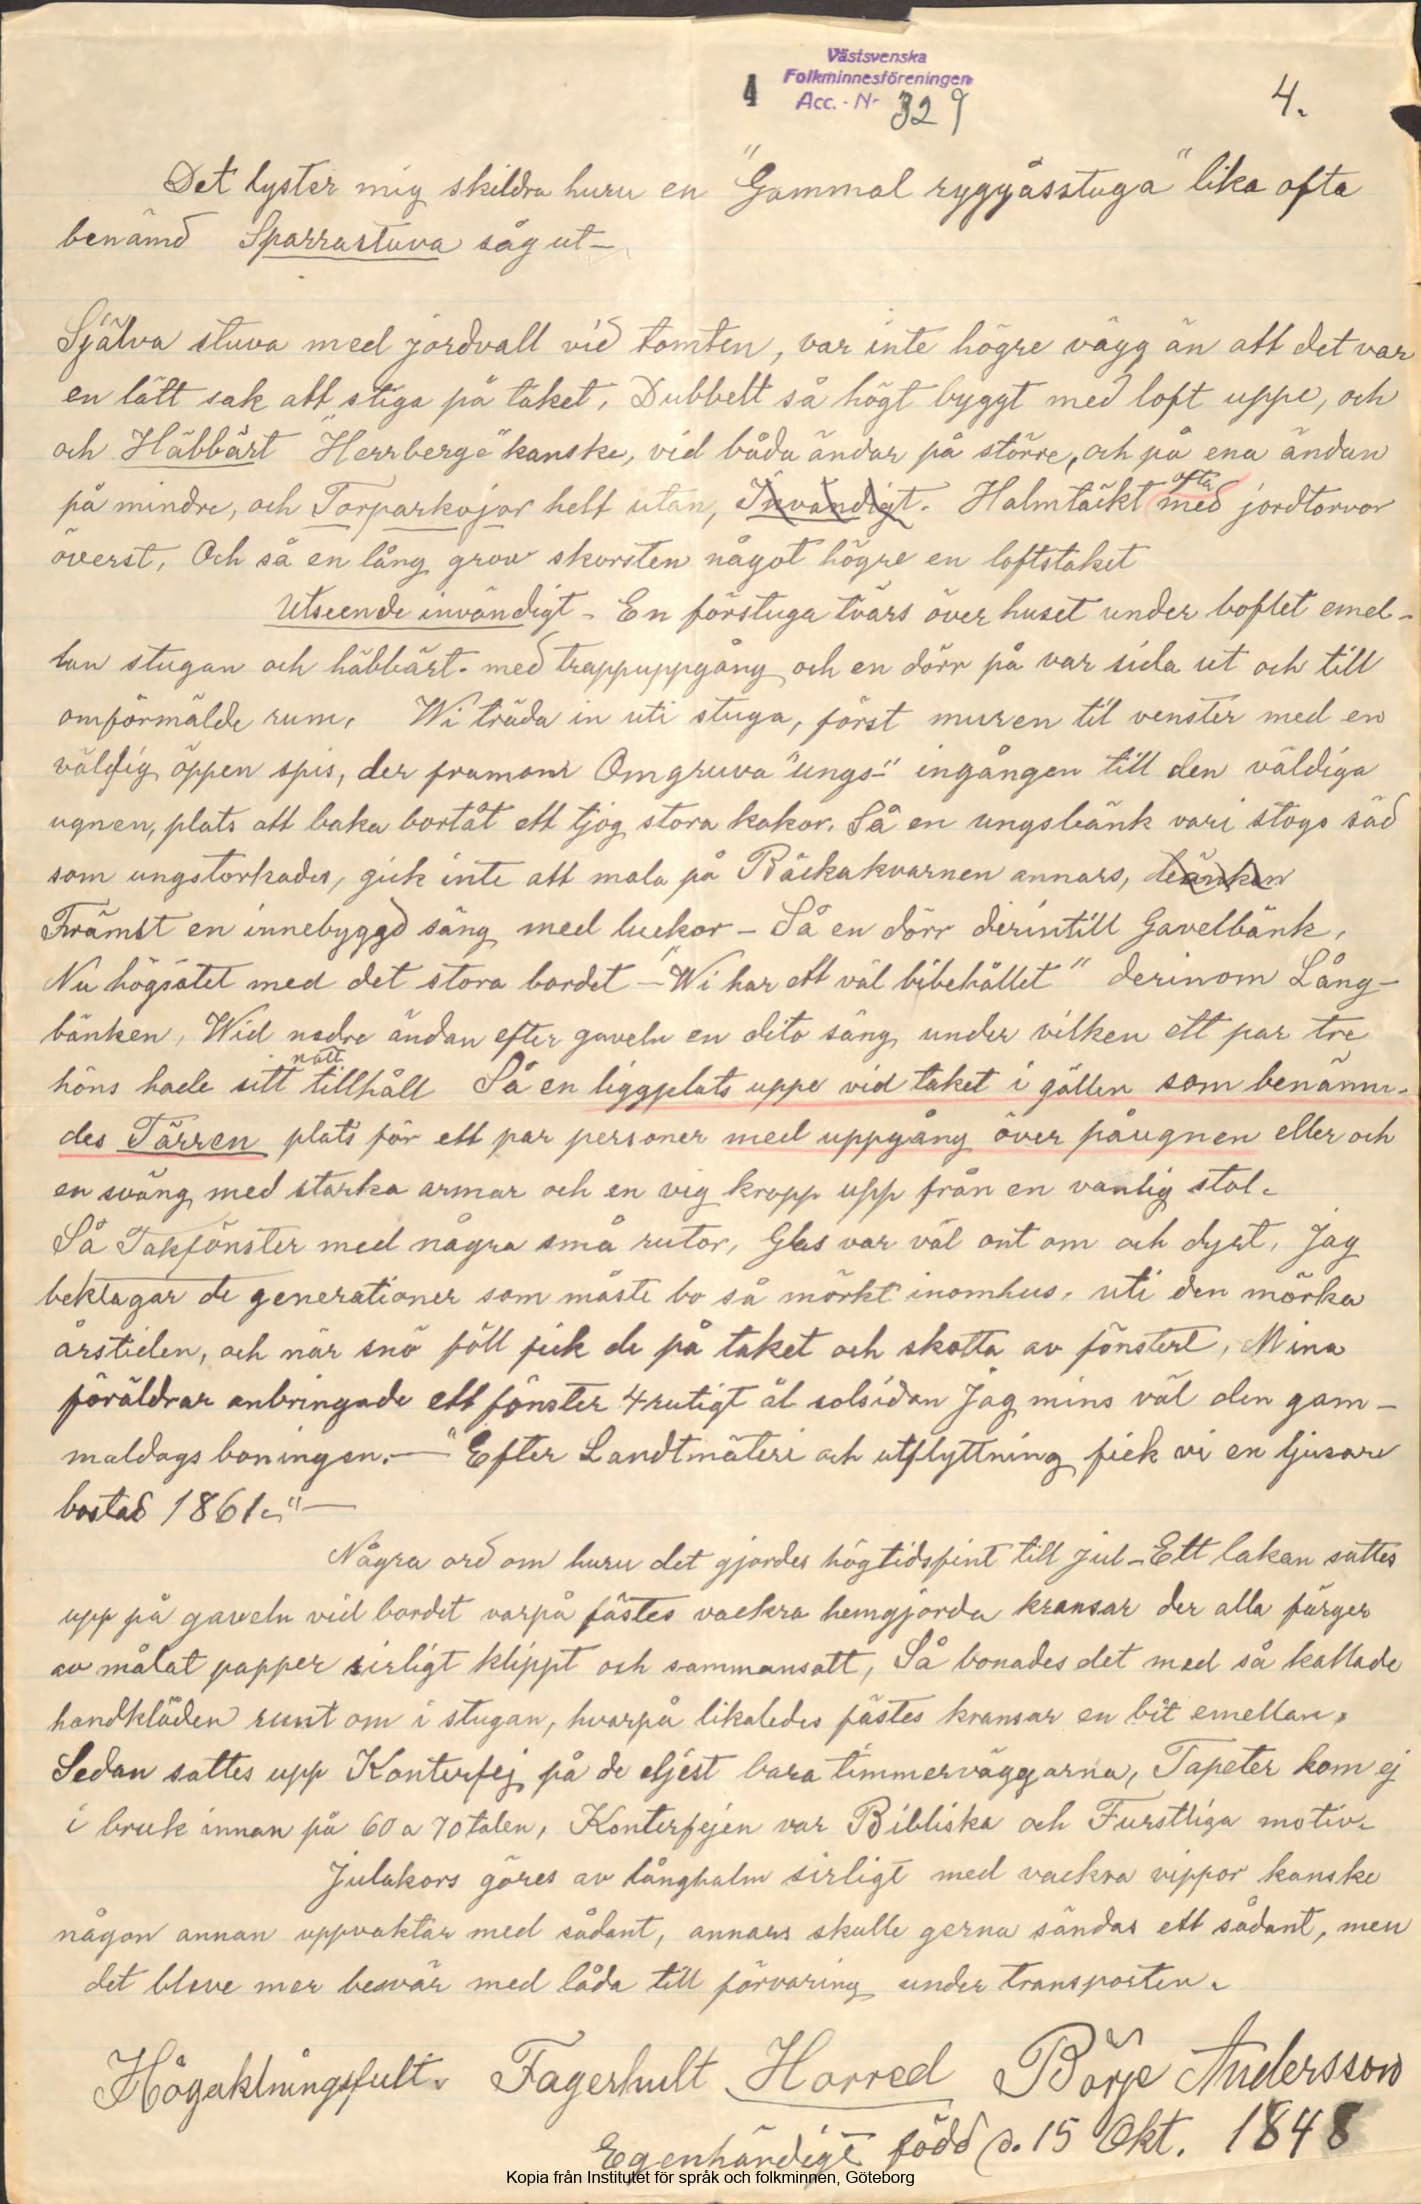 Västsvenska
Folkminnesföreningen
4 Acc.-Nr 329 4.
Det lyster mig skildra huru en "Gammal ryggåsstuga" lika ofta
benämd Sparrastuva såg ut—
Själva stuva med jordvall vid tomten, var inte högre vägg än att det var
en lätt sak att stiga på taket. Dubbelt så högt byggt med loft uppe, och
och Häbbärt "Herrberge" kanske, vid båda ändar på större, och på ena ändan
på mindre, och Torparkojor helt utan, Invändigt. Halmtäckt ofta med jordtorvor
överst. Och så en lång grov skorsten något högre en loftstaket
Utseende invändigt – En förstuga tvärs över huset under loftet emel-
lan stugan och häbbärt. med trappuppgång och en dörr på var sida ut och till
omförmälde rum. Wi träda in uti stuga, först muren til venster med en
väldig öppen spis, der framom Omgruva "ungs-" ingången till den väldiga
ugnen, plats att baka bortåt ett tjog stora kakor. Så en ungsbänk vari stogs säd
som ungstorkades, gick inte att mala på Bäckakvarnen annars,
Främst en innebyggd säng med luckor – Så en dörr derintill Gavelbänk.
Nu högsätet med det stora bordet – "Wi har ett väl bibehållet" derinom Lång-
bänken. Wid nedre ändan efter gaveln en dito säng under vilken ett par tre
höns hade sitt natt tillhåll Så en liggplats uppe vid taket i gället som benämn-
des Tärren plats för ett par personer med uppgång över påugnen eller och
en sväng med starka armar och en vig kropp upp från en vanlig stol.
Så Takfönster med några små rutor, Glas var väl ont om och dyrt. Jag
beklagar de generationer som måste bo så mörkt inomhus. uti den mörka
årstiden, och när snö föll fick de på taket och skotta av fönstert. Mina
föräldrar anbringade ett fönster 4 rutigt åt solsidan Jag mins väl den gam-
maldags boningen. — "Efter Landtmäteri och utflyttning fick vi en ljusare
bostad 1861." —
Några ord om huru det gjordes högtidsfint till jul – Ett lakan sattes
upp på gaveln vid bordet varpå fästes vackra hemgjorda kransar der alla färger
av målat papper sirligt klippt och sammansatt, Så bonades det med så kallade
handkläden runt om i stugan, hvarpå likaledes fästes kransar en bit emellan.
Sedan sattes upp Konterfej på de eljest bara timmerväggarna, Tapeter kom ej
i bruk innan på 60 a 70 talen, Konterfejen var Bibliska och Furstliga motiv.
Julakors göres av långhalm sirligt med vackra vippor kanske
någon annan uppvaktar med sådant, annars skulle gerna sändas ett sådant, men
det bleve mer besvär med låda till förvaring under transporten.
Högaktningsfullt. Fagerhult Horred Börje Andersson
Egenhändigt född d. 15 Okt. 1848
Kopia från Institutet för språk och folkminnen, Göteborg